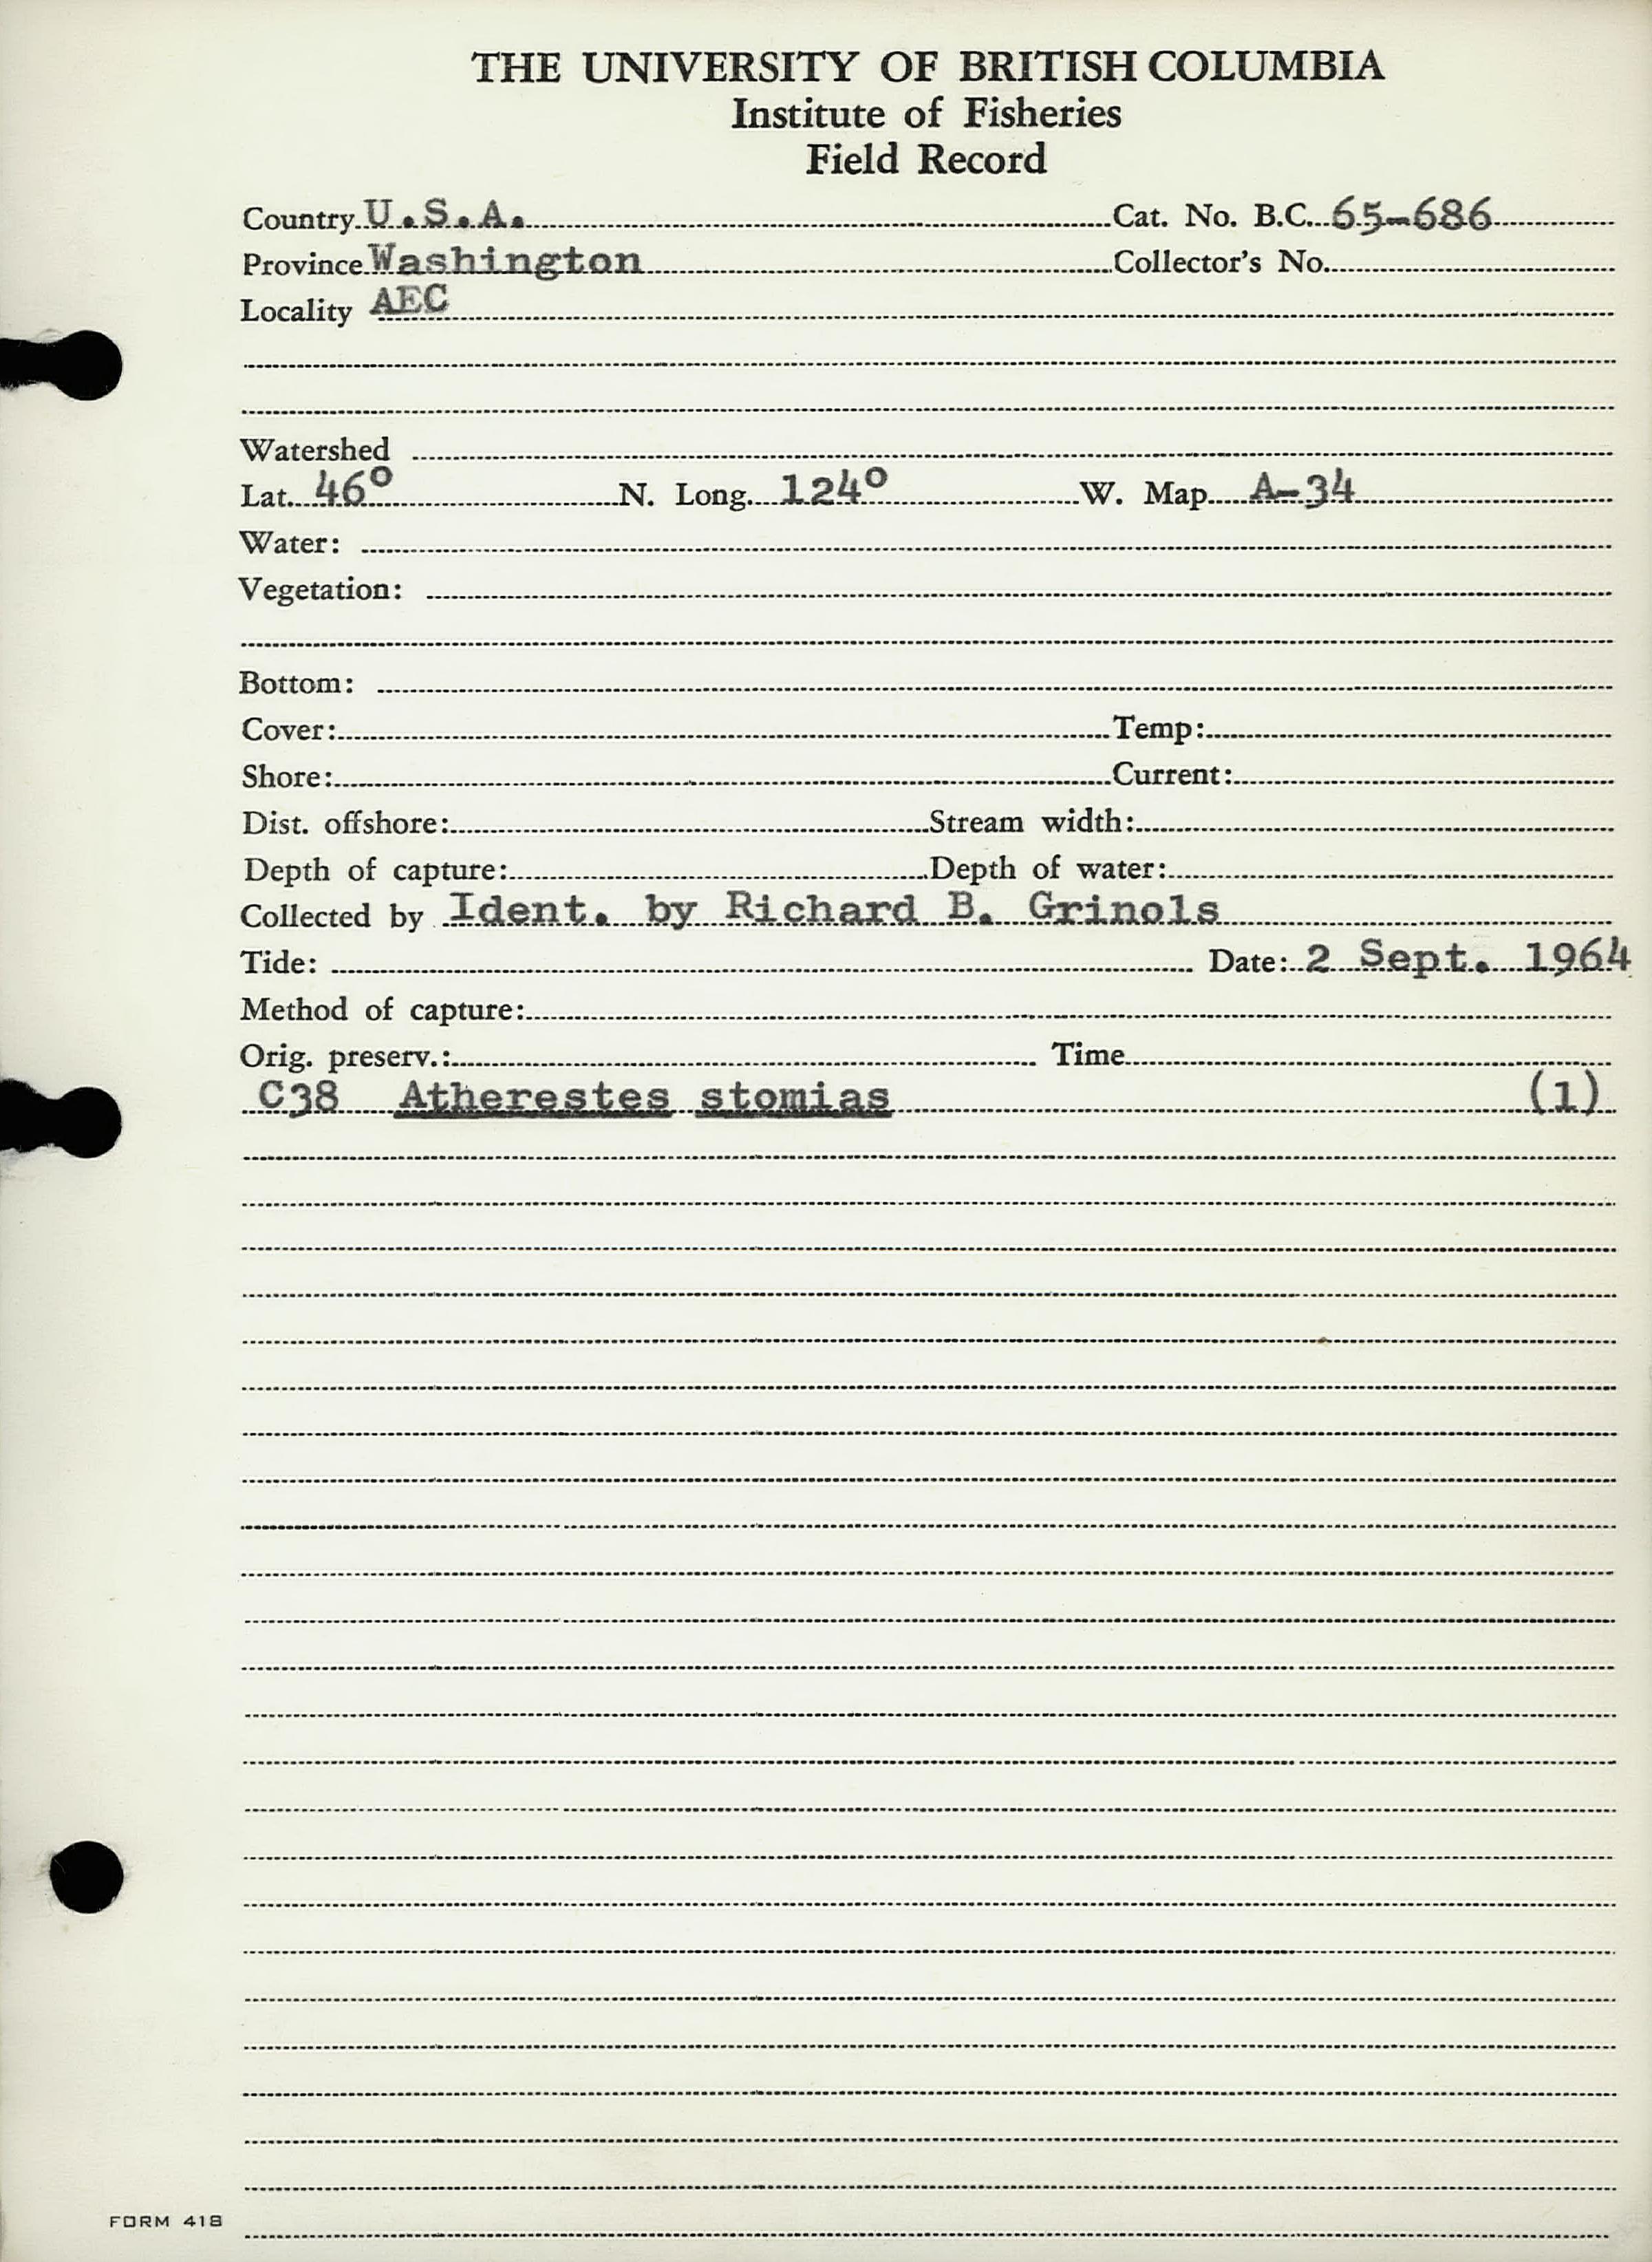 THE UNIVERSITY OF BRITISH COLUMBIA
Institute of Fisheries
Field Record
Country U.S.A. Cat. No. B.C. 65-686
Province Washington Collector's No.
Locality AEC
Watershed
Lat. 46° N. Long. 124° W. Map A-34
Water:
Vegetation:
Bottom:
Cover: Temp:
Shore: Current:
Dist. offshore: Stream width:
Depth of capture: Depth of water:
Collected by Ident. by Richard B. Grinols
Tide: Date: 2 Sept. 1964
Method of capture:
Orig. preserv.: Time
C38 Atherestes stomias (1)
FORM 418